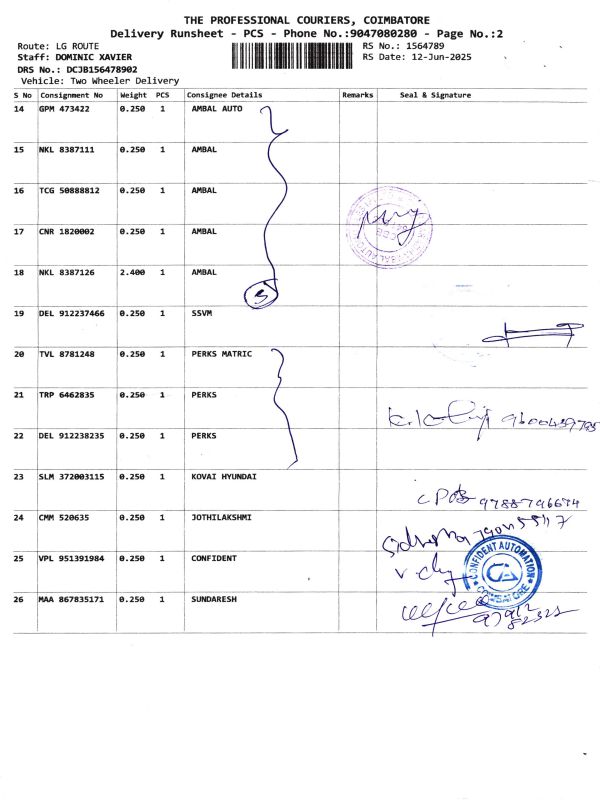 THE PROFESSIONAL COURIERS, COIMBATORE
Delivery Runsheet - PCS - Phone No.:9047080280 - Page No.:2
Route: LG ROUTE
RS No.: 1564789
Staff: DOMINIC XAVIER
RS Date: 12-Jun-2025
DRS No.: DCJB156478902
Vehicle: Two Wheeler Delivery
S No Consignment No Weight PCS Consignee Details Remarks Seal & Signature
14 GPM 473422 0.250 1 AMBAL AUTO
15 NKL 8387111 0.250 1 AMBAL
16 TCG 50888812 0.250 1 AMBAL
17 CNR 1820002 0.250 1 AMBAL
18 NKL 8387126 2.400 1 AMBAL
5
19 DEL 912237466 0.250 1 SSVM
20 TVL 8781248 0.250 1 PERKS MATRIC
21 TRP 6462835 0.250 1 PERKS
22 DEL 912238235 0.250 1 PERKS
23 SLM 372003115 0.250 1 KOVAI HYUNDAI
24 CMM 520635 0.250 1 JOTHILAKSHMI
25 VPL 951391984 0.250 1 CONFIDENT
CONFIDENT AUTOMATION
CA
COIMBATORE
26 MAA 867835171 0.250 1 SUNDARESH